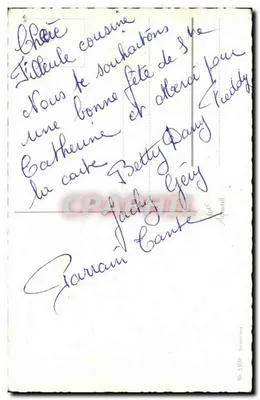 Chère
Filleule cousine
Nous te souhaitons
une bonne fête de Ste
Catherine et merci pour
la carte
Betty Dany Freddy
Jacky Gény
Parrain Tante
CPARAMA